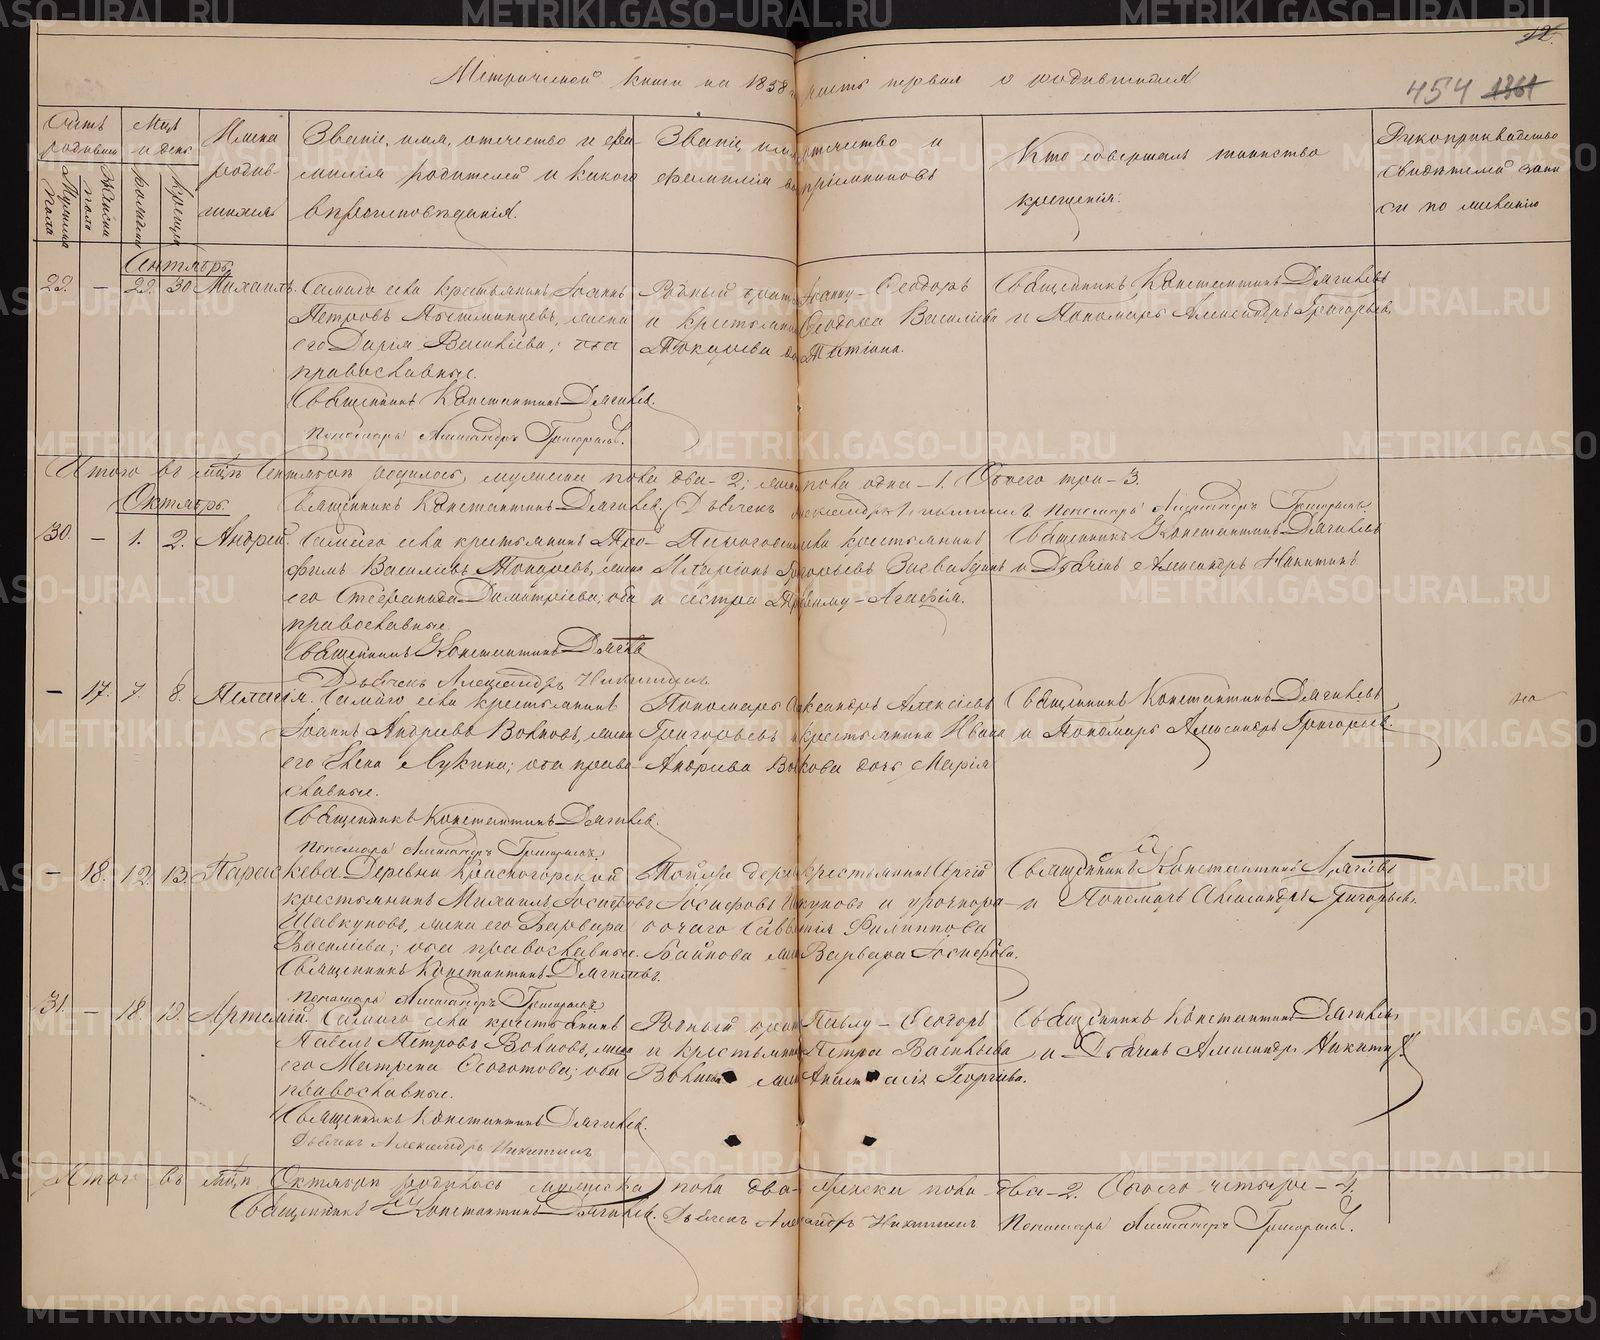 METRIKI.GASO-URAL.RU
12.
Метрической книги на 1858 г. часть первая о родившихся
454 1361
Счетъ родившихся
Мужеска пола
Женска пола
Мцъ и день
рожденія
крещенія
Имена родившихся
Званіе, имя, отечество и фамилія родителей и какого вѣроисповѣданія.
Званіе, имя, отечество и фамилія воспріемниковъ
Кто совершалъ таинство крещенія.
Рукоприкладство свидѣтелей записи по желанію
Сентябрь.
29. — 29. 30. Михаилъ.
Самаго села крестьянинъ Іоаннъ
Петровъ, жена
его Дарія Василіева; оба
православные.
Священникъ Константинъ Дягилевъ.
Пономарь Александръ Григорьевъ.
Родный братъ Іоанну — Ѳеодоръ
и крестьянина Ѳеодора Василіева
Токарева дочь Татіана.
Священникъ Константинъ Дягилевъ
и Пономарь Александръ Григорьевъ.
Итого въ мцѣ Сентябрѣ родилось, мужеска пола два — 2; женска пола одна — 1. Обоего три — 3.
Священникъ Константинъ Дягилевъ. Дьячекъ Александръ Никитинъ. Пономарь Александръ Григорьевъ.
Октябрь.
30. — 1. 2. Андрей.
Самаго села крестьянинъ Тро-
фимъ Василіевъ Токаревъ, жена
его Стефанида Димитріева; оба
православные.
Священникъ Константинъ Дягилевъ
Дьячекъ Александръ Никитинъ.
крестьянинъ
Иларіонъ Григорьевъ
и сестра Трофиму — Агафія.
Священникъ Константинъ Дягилевъ
и Дьячекъ Александръ Никитинъ
— 17. 7. 8. Пелагія.
Самаго села крестьянинъ
Іоаннъ Андреевъ Волковъ, жена
его Елена Лукина; оба право-
славные.
Священникъ Константинъ Дягилев.
Пономарь Александръ Григорьевъ.
Пономарь Александръ Алексіевъ
Григорьевъ и крестьянина Ивана
Андреева Волкова дочь Марія
Священникъ Константинъ Дягилевъ
и Пономарь Александръ Григорьевъ.
— 18. 12. 13. Параскева.
Деревни Красногорской
крестьянинъ Михаилъ Іосифовъ
Шавкуновъ, жена его Варвара
Василіева; оба православные.
Священникъ Константинъ Дягилевъ.
Пономарь Александръ Григорьевъ
Тойже дерев. крестьянинъ Сергій
Іосифовъ Шавкуновъ и урочнора-
бочаго Саввы Филиппова
Байнова жена Варвара Іосифова.
Священникъ Константинъ Дягилевъ
и Пономарь Александръ Григорьевъ.
31. — 18. 19. Артемій.
Самаго села крестьянинъ
Павелъ Петровъ Волковъ, жена
его Матрена Ѳедотова; оба
православные.
Священникъ Константинъ Дягилев.
Дьячекъ Александръ Никитинъ
Родный братъ Павлу — Ѳеодоръ
и крестьянина Петра Василіева
Волкова жена Анастасія Георгіева.
Священникъ Константинъ Дягилевъ,
и Дьячекъ Александръ Никитинъ
Итого въ мцѣ Октябрѣ родилось мужеска пола два — женска пола два — 2. Обоего четыре — 4.
Священникъ Константинъ Дягилев. Дьячекъ Александръ Никитинъ Пономарь Александръ Григорьевъ.
METRIKI.GASO-URAL.RU